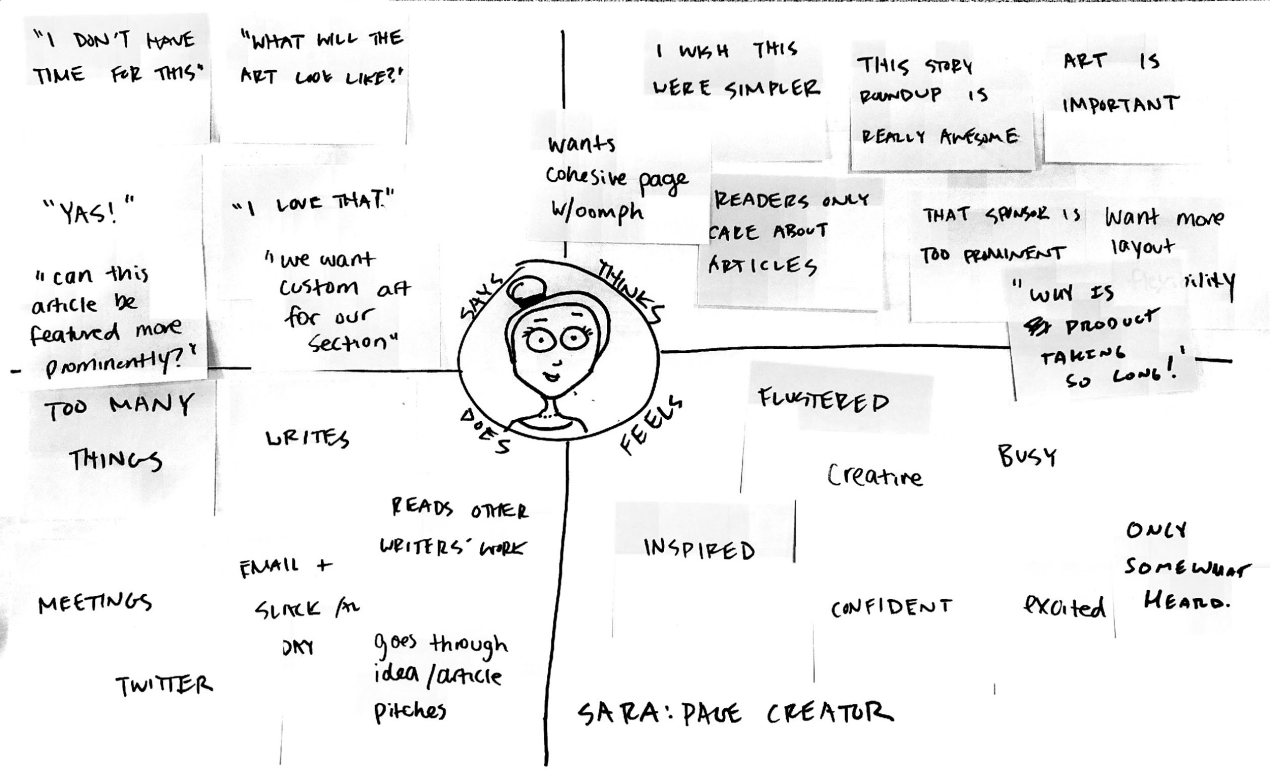 "I DON'T HAVE
TIME FOR THIS"
"WHAT WILL THE
ART LOOK LIKE?"
"YAS!"
"I LOVE THAT."
"can this
article be
featured more
prominently?"
"we want
custom art
for our
section"
I WISH THIS
WERE SIMPLER
THIS STORY
ROUNDUP IS
REALLY AWESOME
ART IS
IMPORTANT
wants
cohesive page
w/oomph
READERS ONLY
CARE ABOUT
ARTICLES
THAT SPONSOR IS
TOO PROMINENT
Want more
layout
"WHY IS
PRODUCT
TAKING
SO LONG!"
SAYS
THINKS
DOES
FEELS
TOO MANY
THINGS
WRITES
READS OTHER
WRITERS' WORK
MEETINGS
EMAIL +
SLACK
DAY
TWITTER
goes through
idea/article
pitches
FLUSTERED
Creative
BUSY
INSPIRED
CONFIDENT
excited
ONLY
SOMEWHAT
HEARD.
SARA: PAGE CREATOR